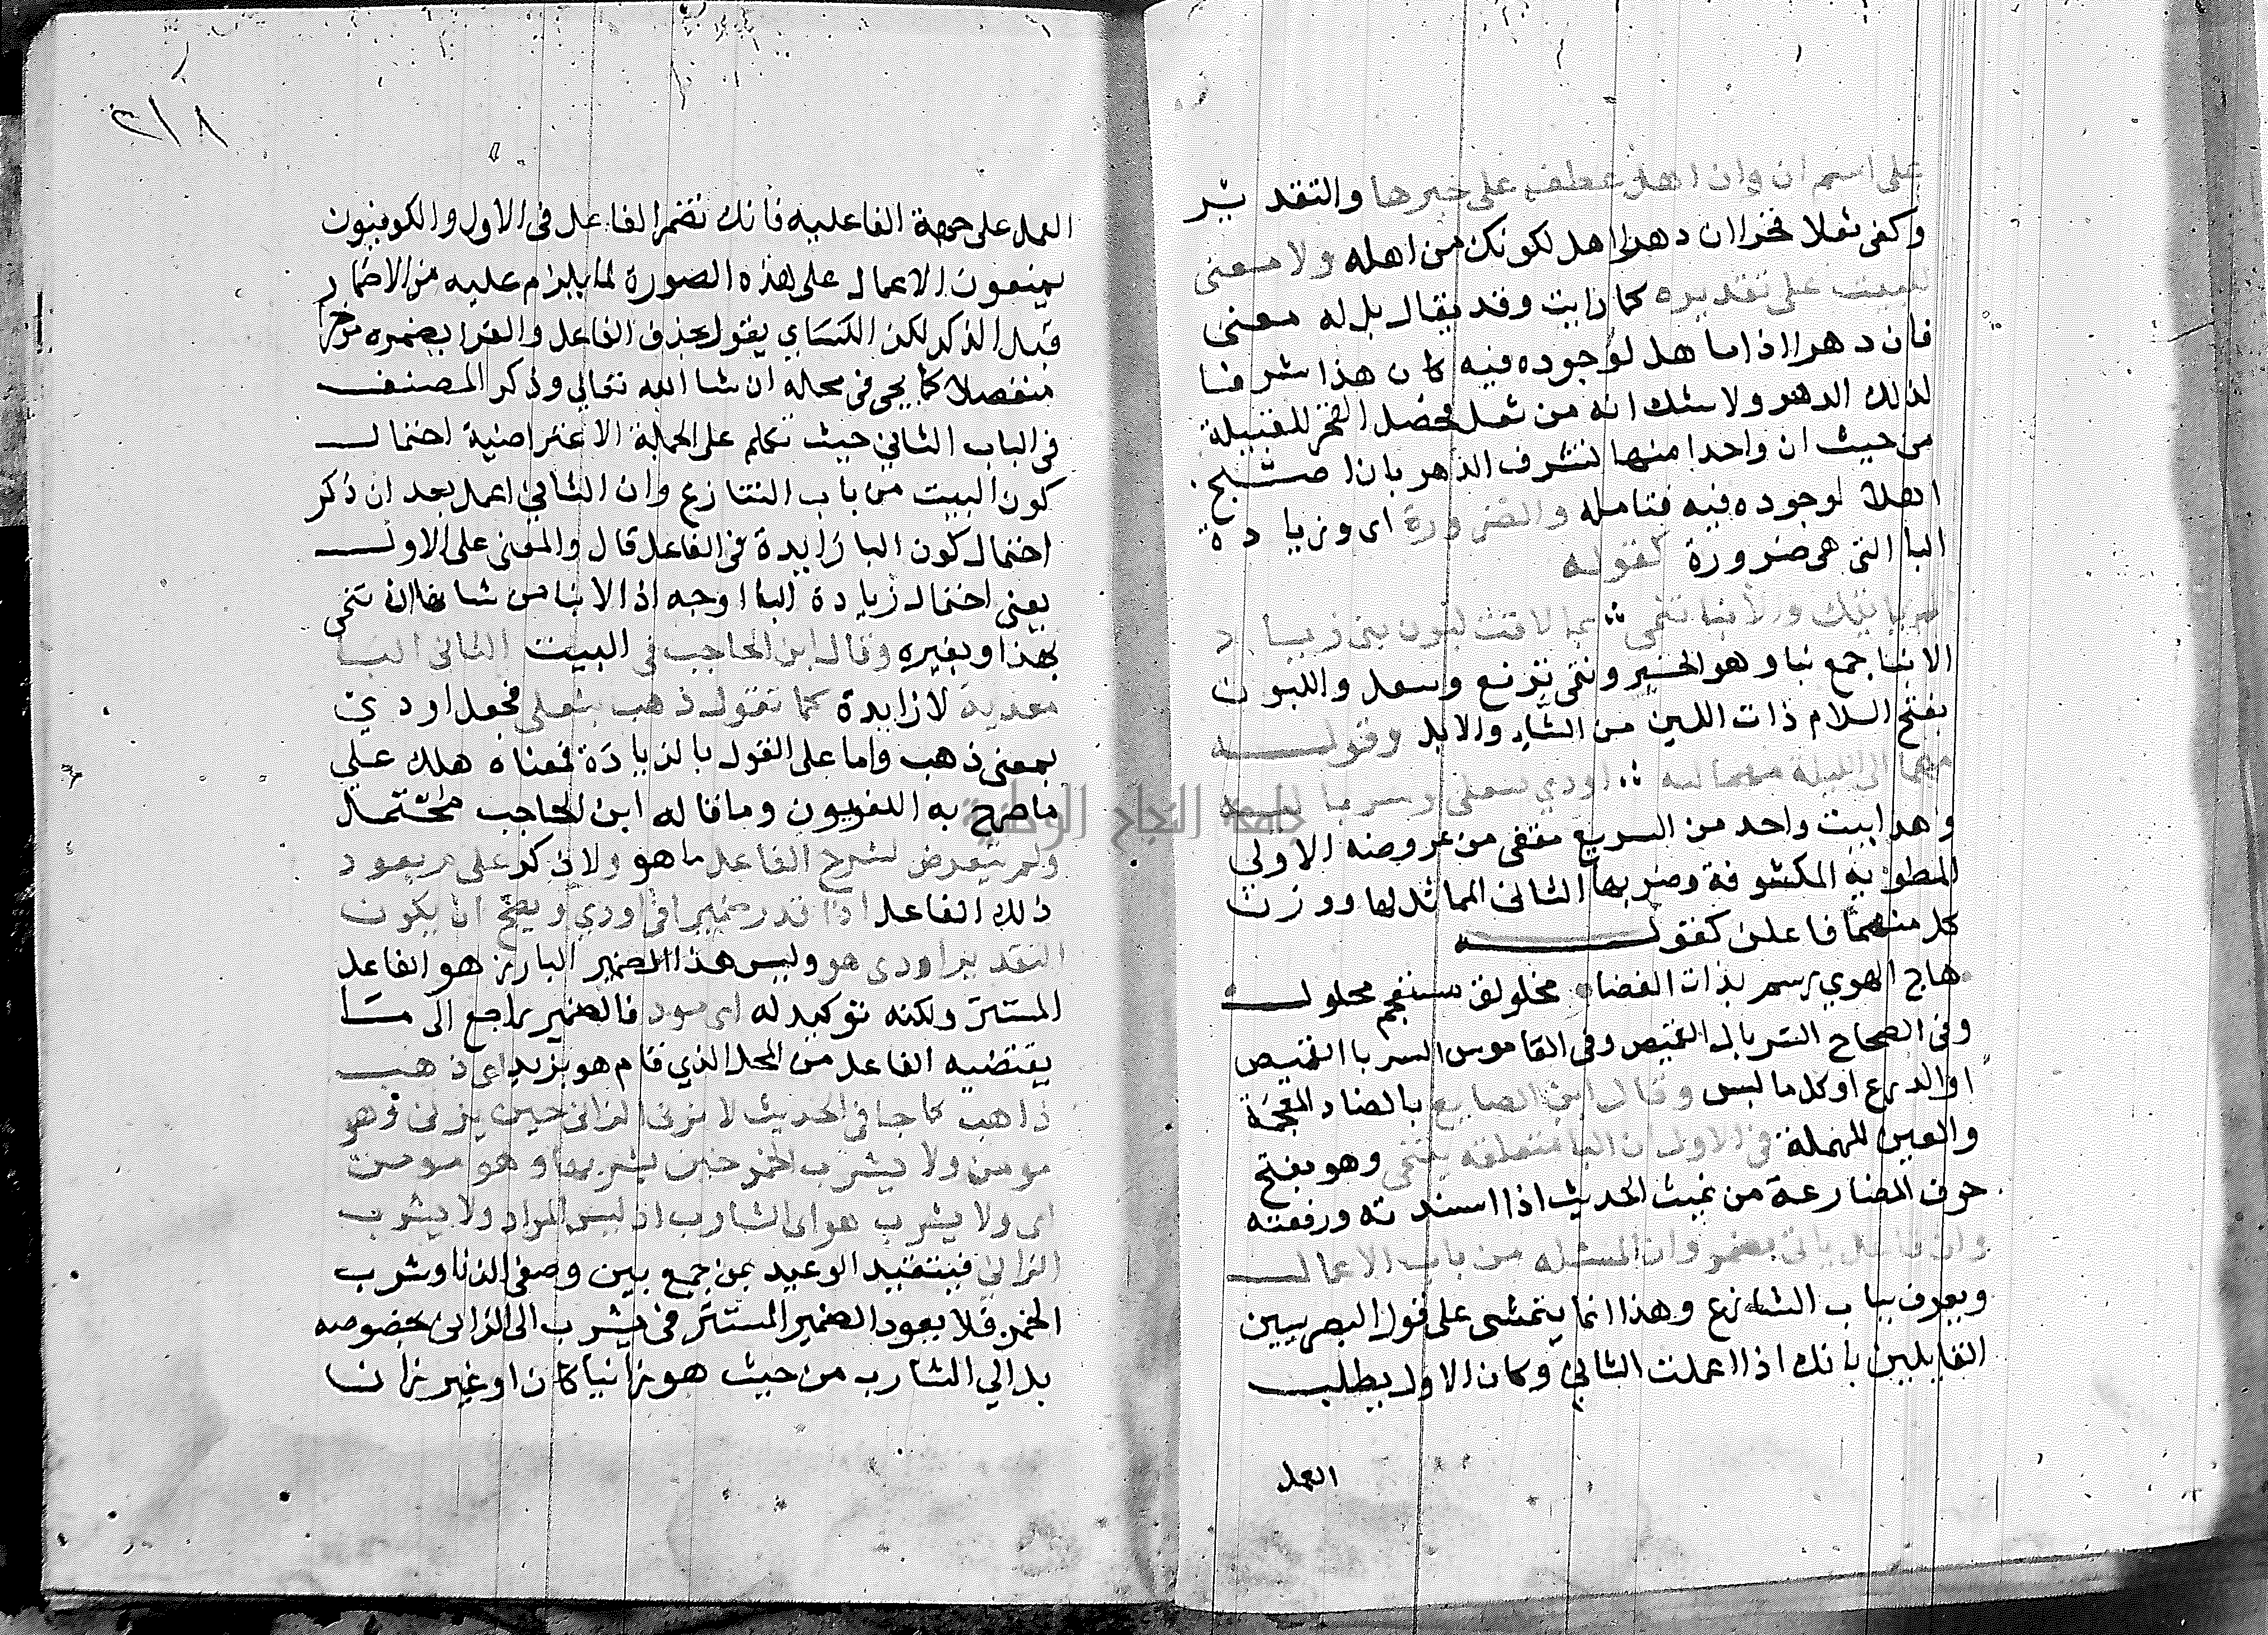 على اسم ان وان اهل عطف على خبرها والتقدير
وكفى ثعلا فخرا ان دهرا اهل لكونك من اهله ولا معنى
للبيت على تقديره كما رايت وقد يقال بل له معنى
فان دهرا اذا ما هل لوجوده فيه كان هذا شرفا
لذلك الدهر ولا شك انه من ثعل فحصل الفخر للقبيلة
من حيث ان واحدا منها تشرف الدهر بان اصبح
اهلا لوجوده فيه فتامله والضرورة اى وزيادة
البا التى هى ضرورة كقوله
الم ياتيك والانبا تنمى ∴ بما لاقت لبون بنى زياد
الانبا جمع نبا وهو الخبر وتنمى ترتفع وسعل واللبون
بفتح اللام ذات اللبن من الشاء والابل وقوله
مهما لى الليلة مهما ليه ∴ اودي بنعلى وسرباليه
وهذا بيت واحد من السريع مقفى من عروضه الاولي
المطوية المكشوفة وضربها الثانى المماثل لها ووزن
كل منهما فاعلن كقوله
هاج الهوي رسم بذات الغضا مخلولق مستعجم محول
وفى الصحاح السربال القميص وفى القاموس السربال القميص
او الدرع او كل ما لبس وقال ابن الضايع بالضاد المعجمة
والعين المهملة فى الاول ان البا متعلقة بتنمى وهو بفتح
حرف المضارعة من نميت الحديث اذا اسندته ورفعته
وان فاعل ياتى مضمر وان المسئلة من باب الاعمال
ويعرف بباب التنازع وهذا انما يتمشى على قول البصريين
القايلين بانك اذا اعملت الثانى وكان الاول يطلب
العمل
٢١٨
العمل على جهة الفاعليه فانك تضمر الفاعل فى الاول والكوفيون
يمنعون الاعمال على هذه الصورة لما يلزم عليه من الاضمار
قبل الذكر لكن الكساي يقول بحذف الفاعل والفرا يضمره موخرا
منفصلا كما يجى فى محله ان شا الله تعالي وذكر المصنف
فى الباب الثاني حيث تكلم على الجملة الاعتراضية احتمال
كون البيت من باب التنازع وان الثاني اعمل بعد ان ذكر
احتمال كون البا زايدة فى الفاعل قال والمعنى على الاول
يعنى احتمال زيادة البا اوجه اذ الانبا من شانها ان تنمى
بهذا وبغيره وقال ابن الحاجب فى البيت الثانى البا
معدية لا زايدة كما تقول ذهب بنعلى فجعل اودي
بمعنى ذهب واما على القول بالزيادة فمعناه هلك علي
ما صرح به اللغويون وما قاله ابن الحاجب محتمل
ولم يتعرض لشرح الفاعل ما هو ولا ذكر على م يعود
ذلك الفاعل اذا قدر ضميرا فى اودي ويصح ان يكون
التقدير اودى هو وليس هذا الضمير البارز هو الفاعل
المستتر ولكنه توكيد له اى مود فالضمير راجع الى ما
يقتضيه الفاعل من المحل الذي قام هو بزيد اى ذهب
ذاهب كما جا فى الحديث لا يزنى الزانى حين يزنى وهو
مومن ولا يشرب الخمر حين يشربها وهو مومن
اى ولا يشرب هو اى الشارب اذ ليس المراد ولا يشرب
الزانى فيتقيد الوعيد بمن جمع بين وصفى الزنا وشرب
الخمر فلا يعود الضمير المستتر فى يشرب الى الزانى بخصوصه
بل الي الشارب من حيث هو زانيا كان او غير زان
جامعة النجاح الوطنية